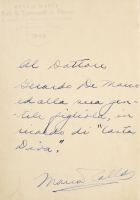 Al Dottore
Gerardo De Marco
ed alla sua gen-
tile figliola, in
ricordo di "Casta
Diva".
Maria Callas